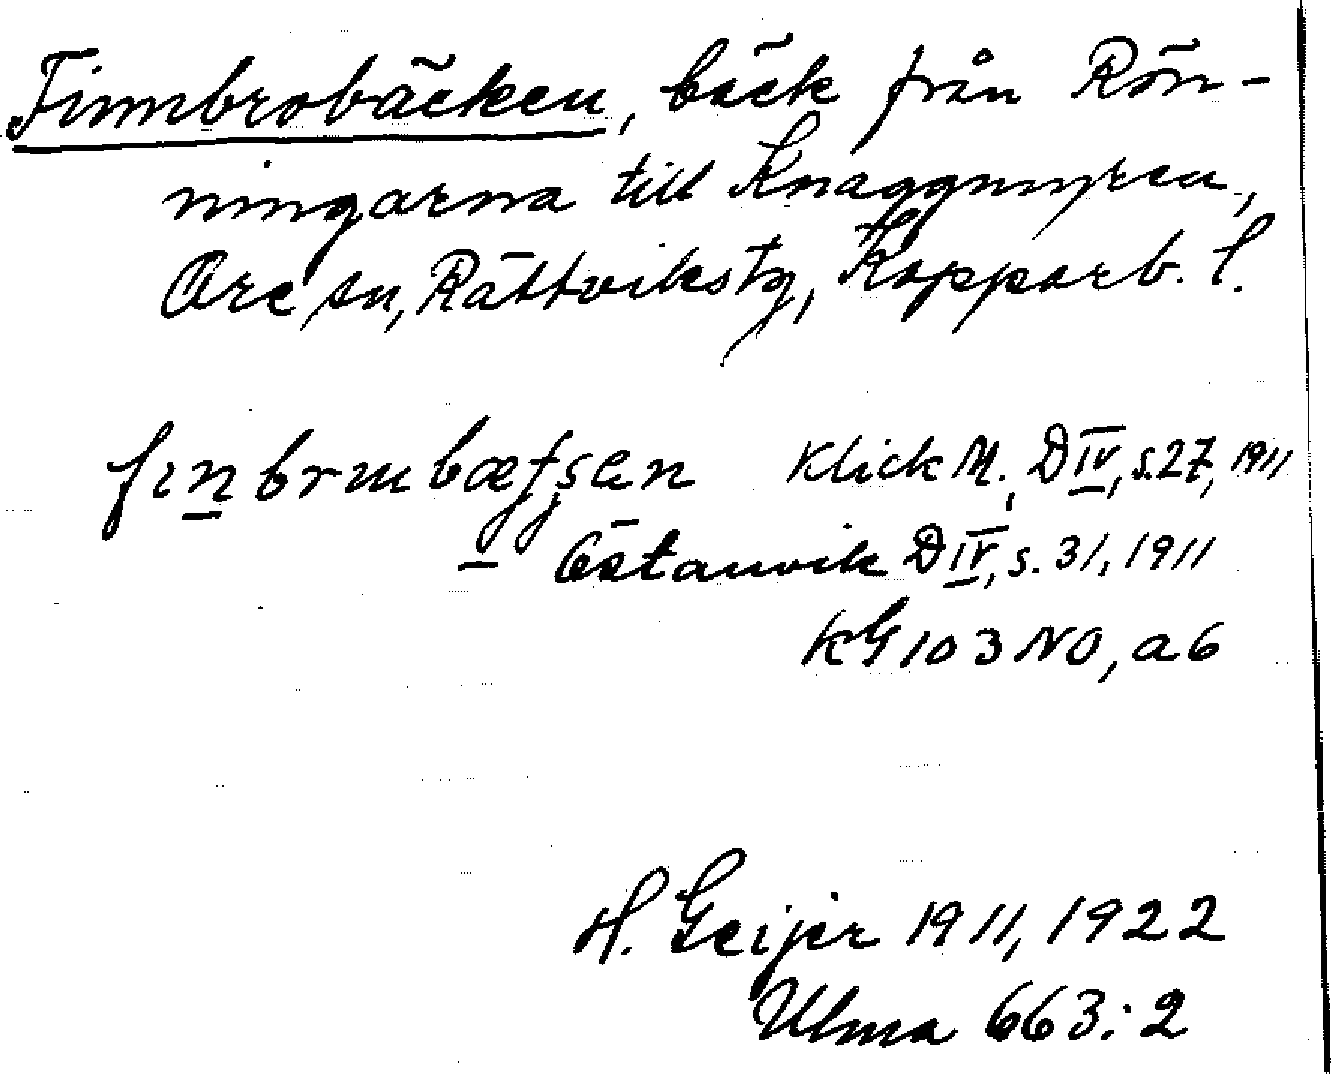 Finnbrobäcken, bäck från Rön-
ningarna till Knaggmyren,
Ore sn, Rättvikstg, Kopparb. l.
Klick M., D IV, s. 27, 1911
— Östanvik D IV, s. 31, 1911
KG 103 NO, a 6
H. Geijer 1911, 1922
Ulma 663:2